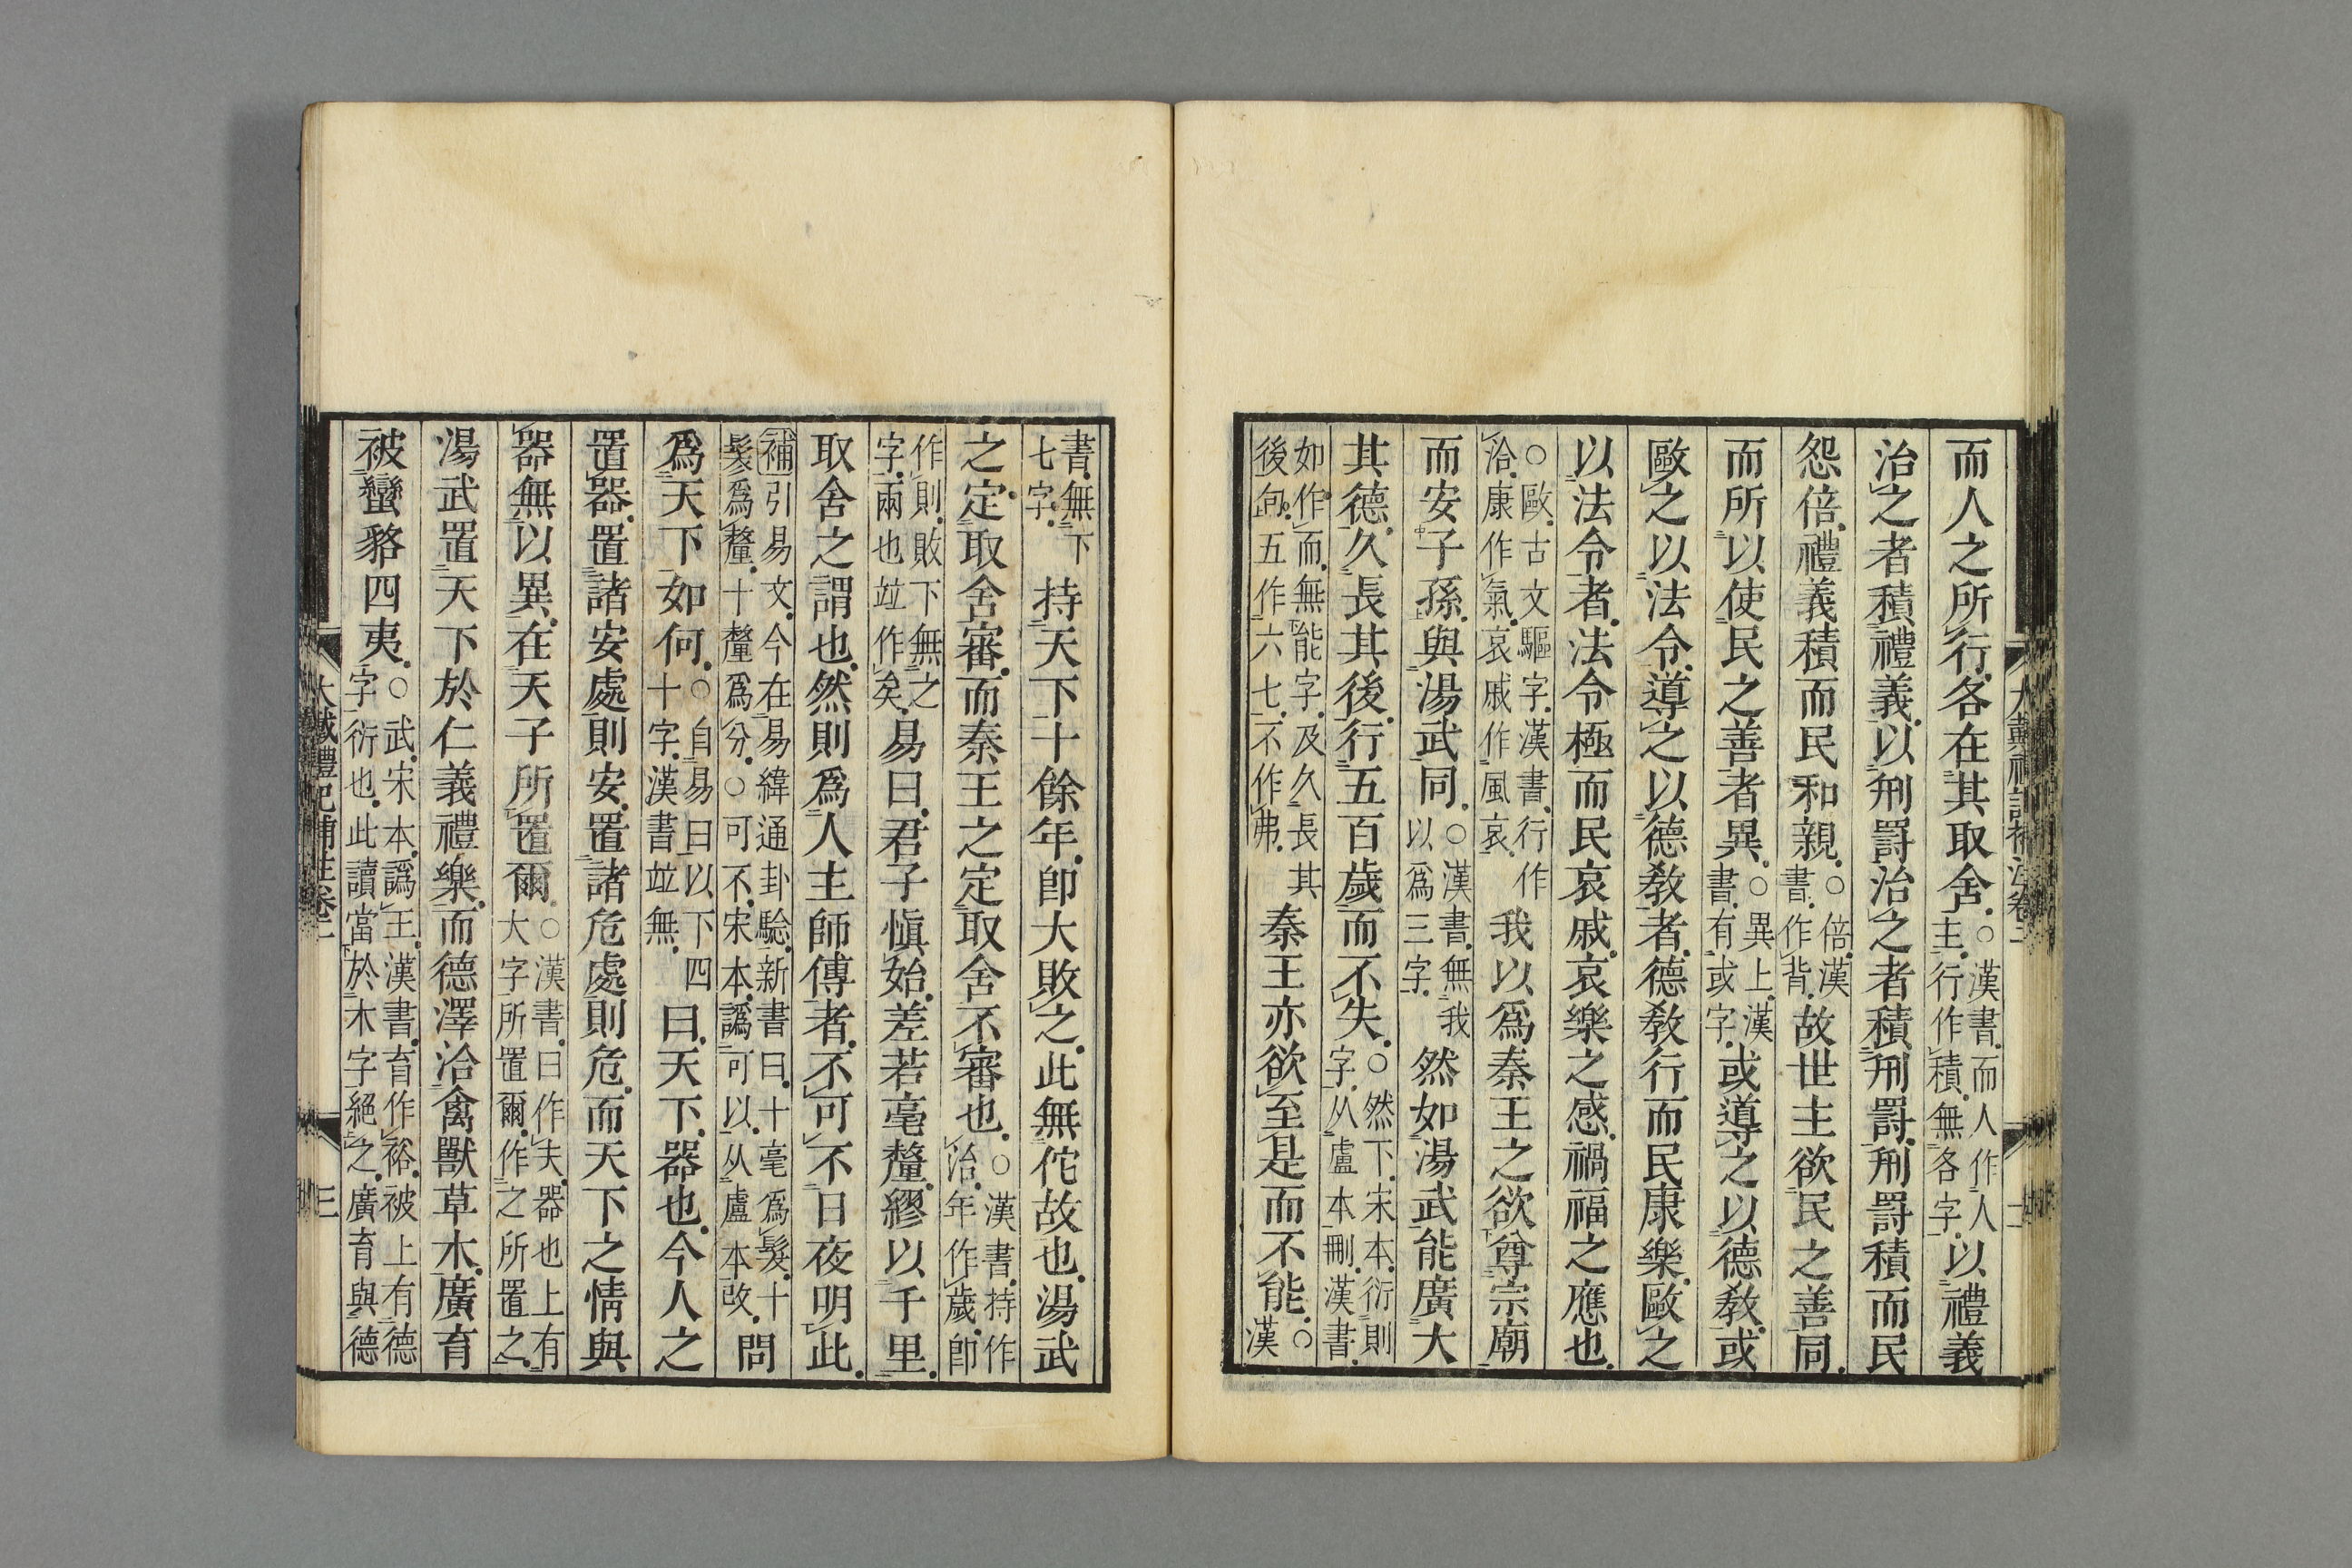 而人之所行各在其取舍○漢書而人作人主行作積無各字以禮義
治之者積禮義以刑罰治之者積刑罰刑罰積而民
怨倍禮義積而民和親○倍漢書作背故世主欲民之善同
而所以使民之善者異○異上漢書有或字或導之以德敎或
歐之以法令導之以德敎者德敎行而民康樂歐之
以法令者法令極而民哀戚哀樂之感禍福之應也
○歐古文驅字漢書行作洽康作氣哀戚作風哀我以爲秦王之欲尊宗廟
而安子孫與湯武同○漢書無我以爲三字然如湯武能廣大
其德久長其後行五百歲而不失○然下宋本衍則字从盧本刪漢書
如作而無能字及久長其後㢠五作六七不作弗秦王亦欲至是而不能○漢
書無下七字持天下十餘年卽大敗之此無佗故也湯武
之定取舍審而秦王之定取舍不審也○漢書持作治年作歲卽
作則敗下無之字兩也竝作矣易曰君子愼始差若毫釐繆以千里
取舍之謂也然則爲人主師傅者不可不日夜明此
補引易文今在易緯通卦驗新書曰十毫爲髮十髮爲釐十釐爲分○可不宋本譌可以从盧本改問
爲天下如何○自易曰以下四十字漢書竝無曰天下器也今人之
置器置諸安處則安置諸危處則危而天下之情與
器無以異在天子所置爾○漢書曰作夫器也上有大字所置爾作之所置之
湯武置天下於仁義禮樂而德澤洽禽獸草木廣育
被蠻貉四夷○武宋本譌王漢書育作裕被上有德字衍也此讀當於木字絕之廣育與德
大戴禮記補注卷二
三